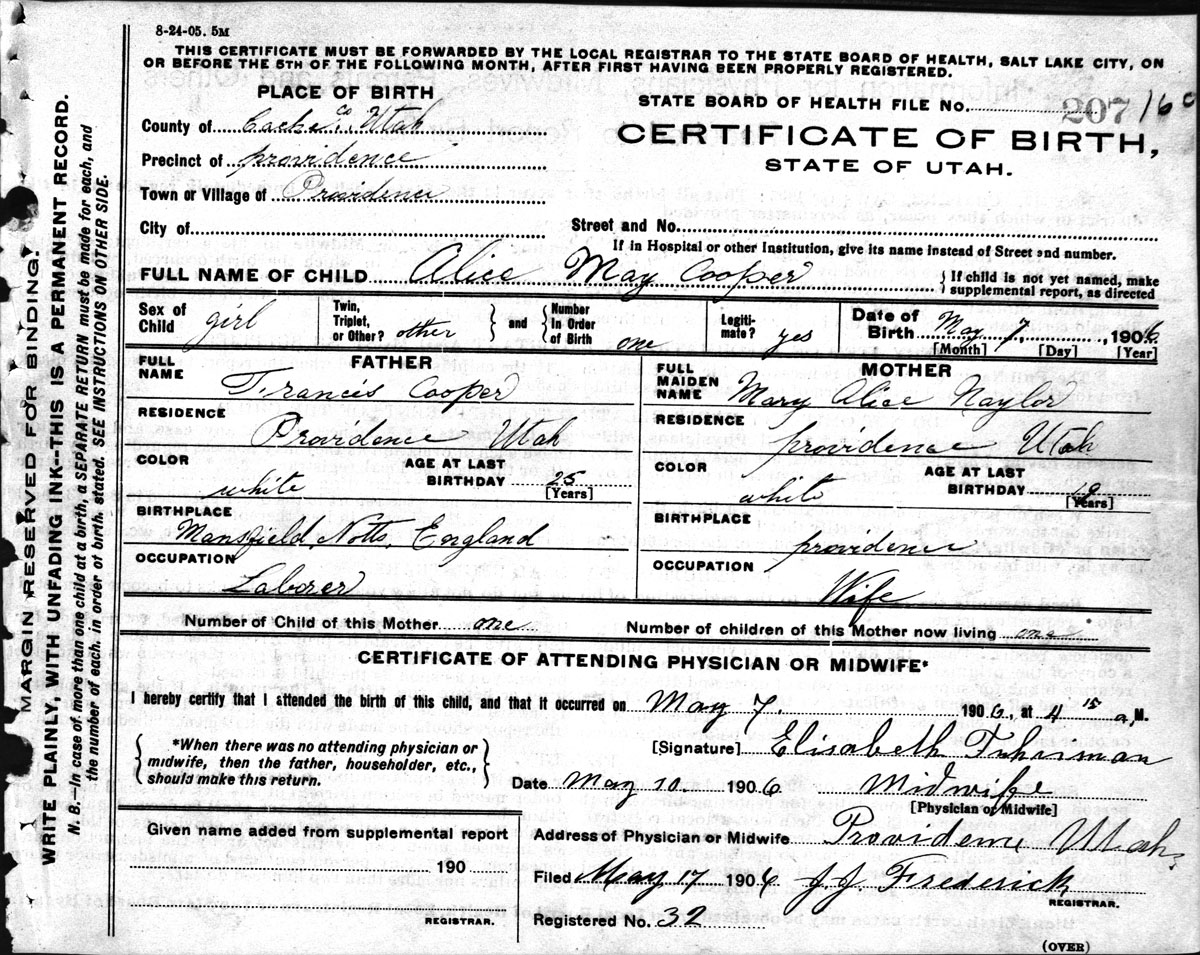 8-24-05. 5M
THIS CERTIFICATE MUST BE FORWARDED BY THE LOCAL REGISTRAR TO THE STATE BOARD OF HEALTH, SALT LAKE CITY, ON
OR BEFORE THE 5TH OF THE FOLLOWING MONTH, AFTER FIRST HAVING BEEN PROPERLY REGISTERED.
PLACE OF BIRTH
County of Cache Co Utah
Precinct of providence
Town or Village of Providence
City of
STATE BOARD OF HEALTH FILE No. 207
CERTIFICATE OF BIRTH,
STATE OF UTAH.
Street and No.
If in Hospital or other Institution, give its name instead of Street and number.
FULL NAME OF CHILD Alice May Cooper { If child is not yet named, make
supplemental report, as directed
Sex of Child girl
Twin, Triplet, or Other? other } and { Number In Order of Birth one
Legiti-mate? yes
Date of Birth May 7, 1906
[Month] [Day] [Year]
FATHER
FULL NAME Francis Cooper
RESIDENCE
Providence Utah
COLOR white AGE AT LAST BIRTHDAY 25
[Years]
BIRTHPLACE
Mansfield, Notts, England
OCCUPATION
Laborer
MOTHER
FULL MAIDEN NAME Mary Alice Naylor
RESIDENCE
providence Utah
COLOR white AGE AT LAST BIRTHDAY 19
[Years]
BIRTHPLACE
providence
OCCUPATION
Wife
Number of Child of this Mother one
Number of children of this Mother now living one
CERTIFICATE OF ATTENDING PHYSICIAN OR MIDWIFE*
I hereby certify that I attended the birth of this child, and that it occurred on May 7. 1906, at 4 15 a, M.
{ *When there was no attending physician or
midwife, then the father, householder, etc.,
should make this return. }
[Signature] Elisabeth
Date May 10. 1906 Midwife
[Physician or Midwife]
Given name added from supplemental report
190
REGISTRAR.
Address of Physician or Midwife Providence Utah.
Filed May 17 1906 J.J. Frederick
REGISTRAR.
Registered No. 32
(OVER)
MARGIN RESERVED FOR BINDING.
WRITE PLAINLY, WITH UNFADING INK--THIS IS A PERMANENT RECORD.
N. B.--In case of more than one child at a birth, a SEPARATE RETURN must be made for each, and
the number of each, in order of birth, stated. SEE INSTRUCTIONS ON OTHER SIDE.